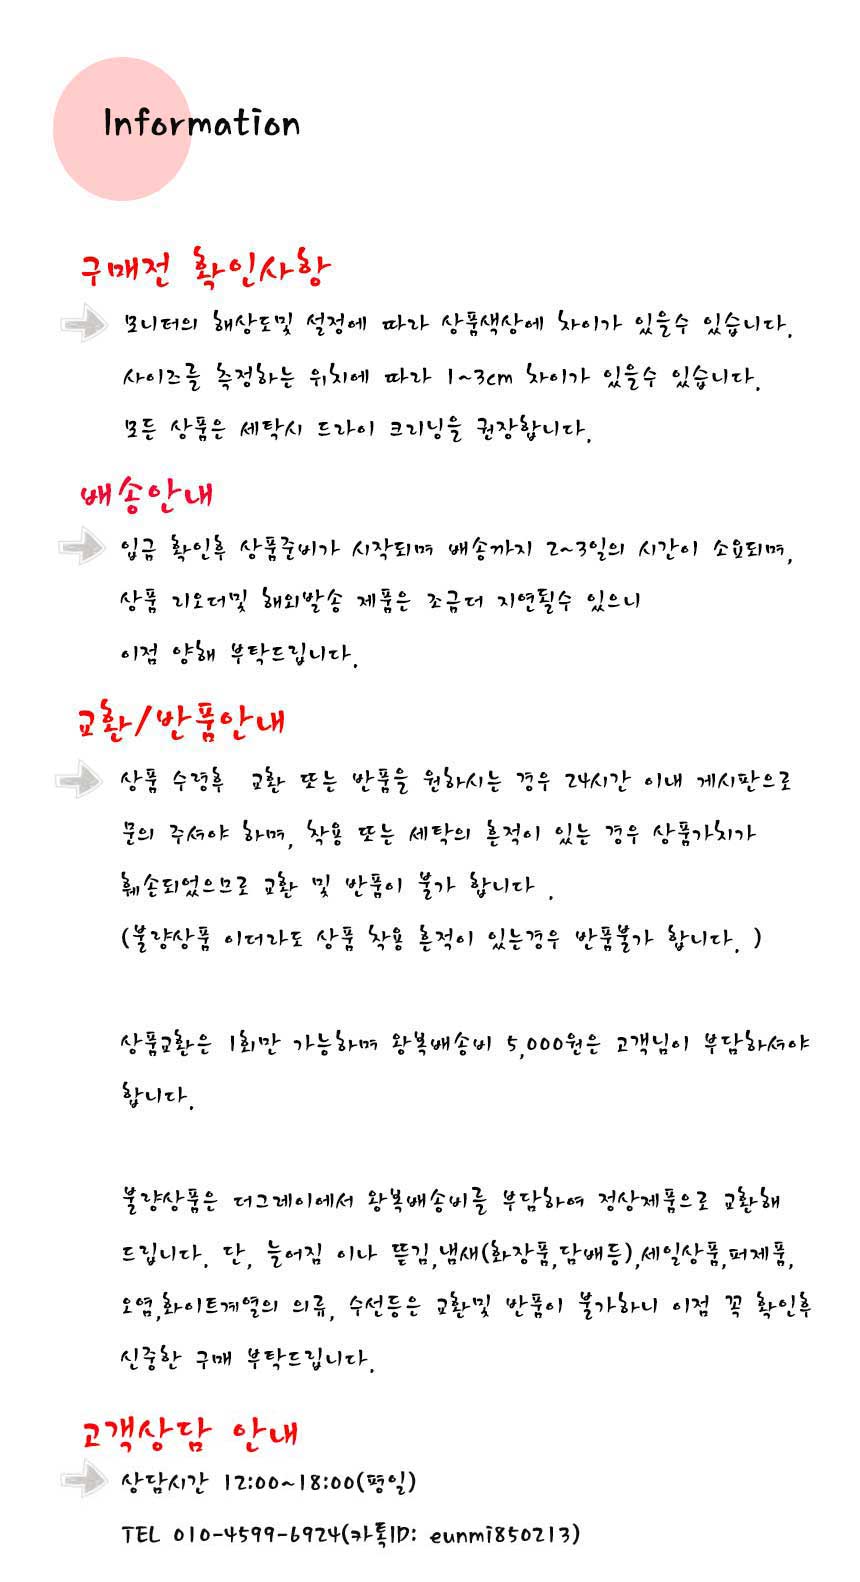 Information
구매전 확인사항
모니터의 해상도및 설정에 따라 상품색상에 차이가 있을수 있습니다.
사이즈를 측정하는 위치에 따라 1~3cm 차이가 있을수 있습니다.
모든 상품은 세탁시 드라이 크리닝을 권장합니다.
배송안내
입금 확인후 상품준비가 시작되며 배송까지 2~3일의 시간이 소요되며,
상품 리오더및 해외발송 제품은 조금더 지연될수 있으니
이점 양해 부탁드립니다.
교환/반품안내
상품 수령후 교환 또는 반품을 원하시는 경우 24시간 이내 게시판으로
문의 주셔야 하며, 착용 또는 세탁의 흔적이 있는 경우 상품가치가
훼손되었으므로 교환 및 반품이 불가 합니다 .
(불량상품 이더라도 상품 착용 흔적이 있는경우 반품불가 합니다. )
상품교환은 1회만 가능하며 왕복배송비 5,000원은 고객님이 부담하셔야
합니다.
불량상품은 더그레이에서 왕복배송비를 부담하여 정상제품으로 교환해
드립니다. 단, 늘어짐 이나 뜯김,냄새(화장품,담배등),세일상품,퍼제품,
오염,화이트계열의 의류, 수선등은 교환및 반품이 불가하니 이점 꼭 확인후
신중한 구매 부탁드립니다.
고객상담 안내
상담시간 12:00~18:00(평일)
TEL 010-4599-6924(카톡ID: eunmi850213)